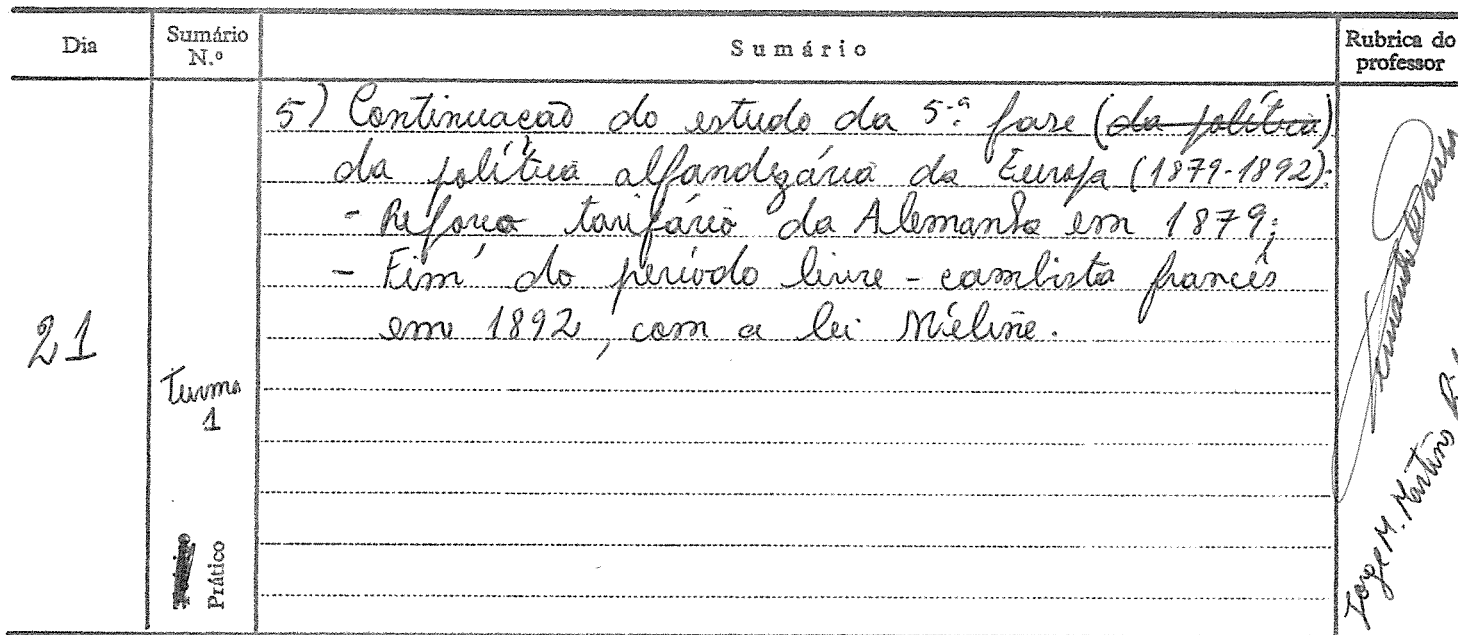 Dia
Sumário N.º
Sumário
Rubrica do professor
5) Continuação do estudo da 5.ª fase (da política)
da política alfandegária da Europa (1879-1892):
- Reforço tarifário da Alemanha em 1879;
- Fim do período livre-cambista francês
em 1892, com a lei Méline.
21
Turma
1
Prático
Jorge M. Martins